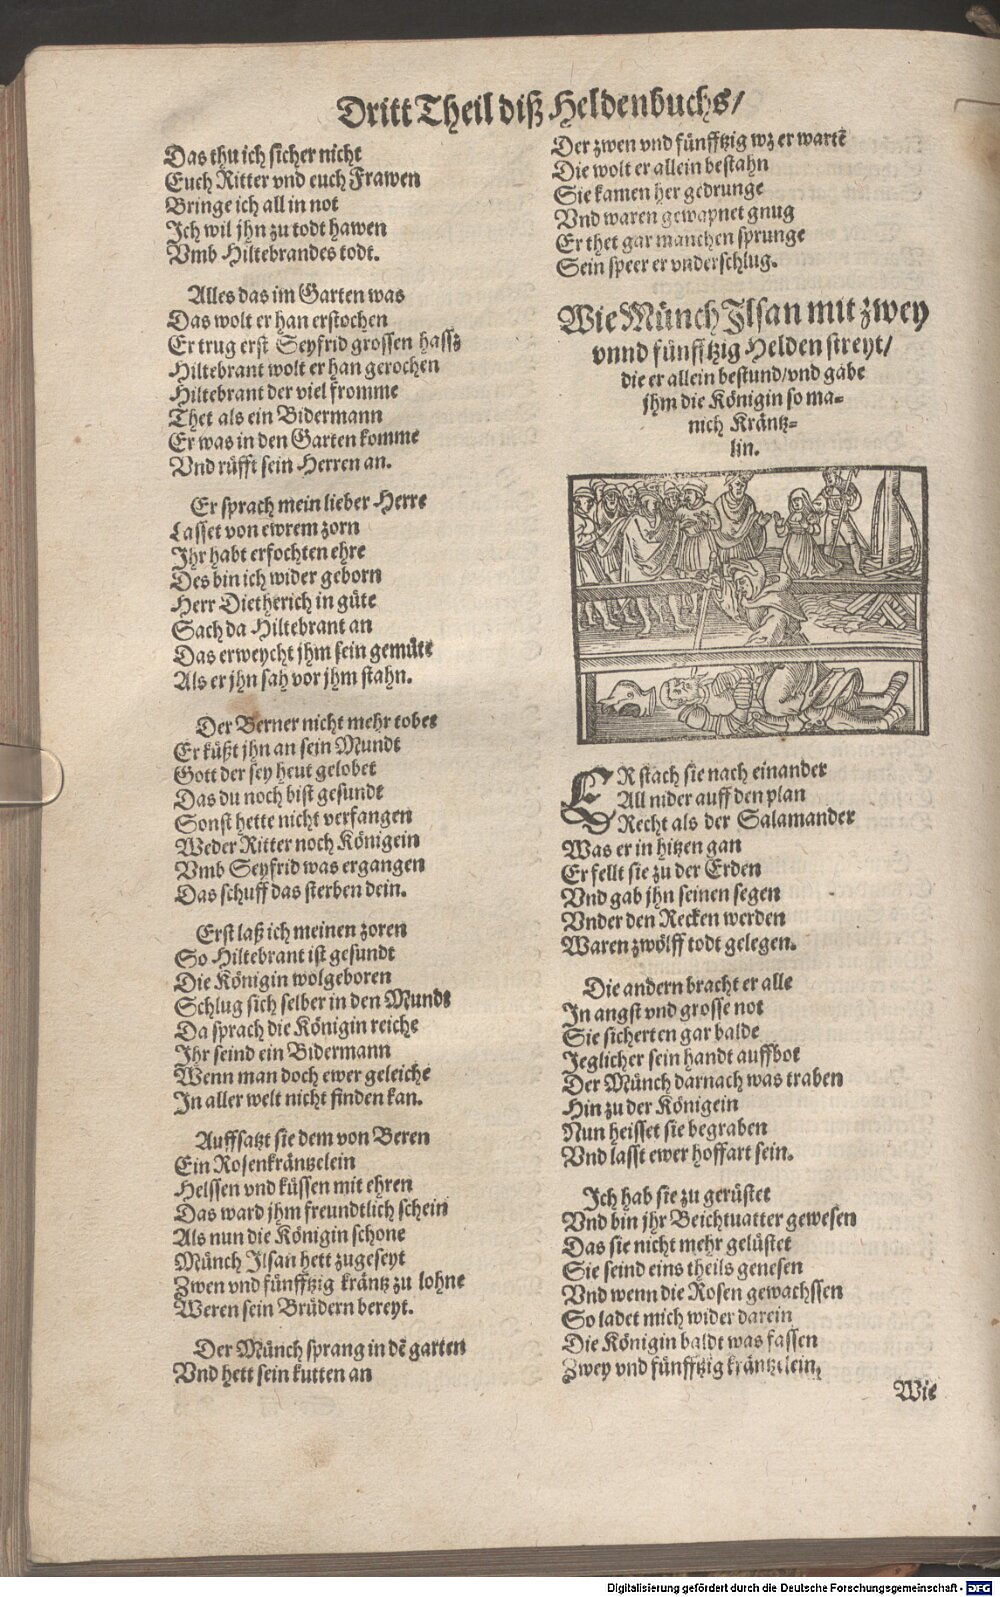 Dritt Theil diß Heldenbuchs/
Das thu ich sicher nicht
Euch Ritter vnd euch Frawen
Bringe ich all in not
Ich wil jhn zu todt hawen
Vmb Hiltebrandes todt.
Alles das im Garten was
Das wolt er han erstochen
Er trug erst Seyfrid grossen hassz
Hiltebrant wolt er han gerochen
Hiltebrant der viel fromme
Thet als ein Bidermann
Er was in den Garten komme
Vnd rüfft sein Herren an.
Er sprach mein lieber Herre
Lasset von ewrem zorn
Ihr habt erfochten ehre
Des bin ich wider geborn
Herr Dietherich in güte
Sach da Hiltebrant an
Das erweycht jhm sein gemüte
Als er jhn sah vor jhm stahn.
Der Berner nicht mehr tobet
Er küßt jhn an sein Mundt
Gott der sey heut gelobet
Das du noch bist gesundt
Sonst hette nicht verfangen
Weder Ritter noch Königein
Vmb Seyfrid was ergangen
Das schuff das sterben dein.
Erst laß ich meinen zoren
So Hiltebrant ist gesundt
Die Königin wolgeboren
Schlug sich selber in den Mundt
Da sprach die Königin reiche
Ihr seind ein Bidermann
Wenn man doch ewer geleiche
In aller welt nicht finden kan.
Auffsatzt sie dem von Beren
Ein Rosenkräntzelein
Helssen vnd küssen mit ehren
Das ward jhm freundtlich schein
Als nun die Königin schone
Münch Ilsan hett zugeseyt
Zwen vnd fünfftzig kräntz zu lohne
Weren sein Brüdern bereyt.
Der Münch sprang in dē garten
Vnd hett sein kutten an
Der zwen vnd fünfftzig wz er wartē
Die wolt er allein bestahn
Sie kamen her gedrunge
Vnd waren gewapnet gnug
Er thet gar manchen sprunge
Sein speer er vnderschlug.
Wie Münch Ilsan mit zwey
vnnd fünfftzig Helden streyt/
die er allein bestund/vnd gabe
jhm die Königin so ma-
nich Kräntz-
lin.
ER stach sie nach einander
All nider auff den plan
Recht als der Salamander
Was er in hitzen gan
Er fellt sie zu der Erden
Vnd gab jhn seinen segen
Vnder den Recken werden
Waren zwölff todt gelegen.
Die andern bracht er alle
In angst vnd grosse not
Sie sicherten gar balde
Jeglicher sein handt auffbot
Der Münch darnach was traben
Hin zu der Königein
Nun heisset sie begraben
Vnd lasst ewer hoffart sein.
Ich hab sie zu gerüstet
Vnd bin jhr Beichtuatter gewesen
Das sie nicht mehr gelüstet
Sie seind eins theils genesen
Vnd wenn die Rosen gewachssen
So ladet mich wider darein
Die Königin baldt was fassen
Zwey vnd fünfftzig kräntzelein,
Wie
Digitalisierung gefördert durch die Deutsche Forschungsgemeinschaft - DFG